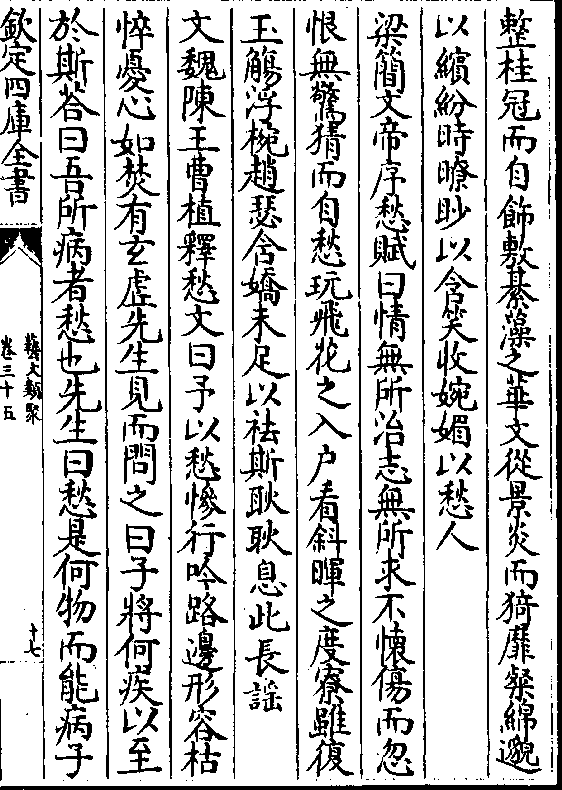 整桂冠而自飾敷綦藻之華文從景炎而猗靡粲綿邈
以繽紛時瞭眇以含笑收婉媚以愁人
梁簡文帝序愁賦曰情無所治志無所求不懷傷而忽
恨無驚猜而自愁玩飛花之入户看斜暉之度寮雖復
玉觴浮椀趙瑟含嬌未足以祛斯耿耿息此長謡
文魏陳王曹植釋愁文曰予以愁慘行吟路邊形容枯
悴憂心如焚有玄虚先生見而問之曰子將何疾以至
於斯荅曰吾所病者愁也先生曰愁是何物而能病子
欽定四庫全書
藝文類聚
卷三十五
十七